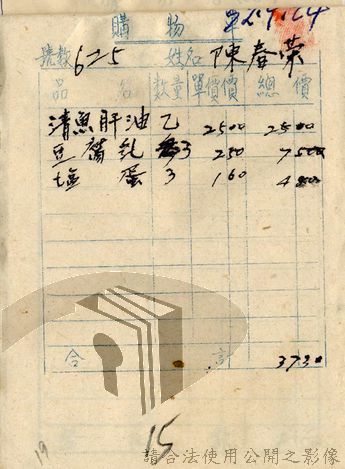 購物單 29.1.24
號數 625 姓名 陳春榮
品名 數量 單價價 總價
清魚肝油 乙 2500 2500
豆腐乳 3 250 7500
塩蛋 3 160 480
合計 3730
15
19
請合法使用公開之影像